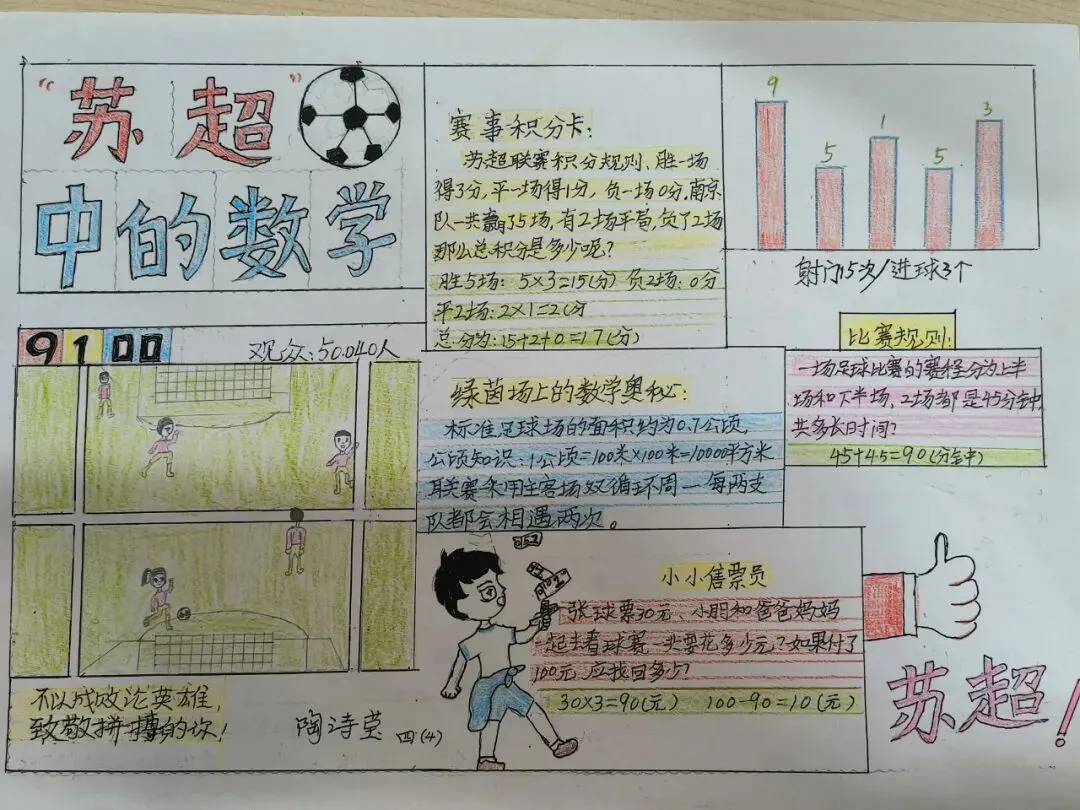 “苏超”
中的数学
赛事积分卡:
苏超联赛积分规则、胜一场
得3分,平一场得1分,负一场0分,南京
队一共赢了5场,有2场平局,负了2场
那么总积分是多少呢?
胜5场: 5×3=15(分) 负2场: 0分
平2场: 2×1=2(分
总分为: 15+2+0=17(分)
9 5 1 5 3
射门15次/进球3个
比赛规则:
一场足球比赛的赛程分为上半
场和下半场、2场都是45分钟,
共多长时间?
45+45=90(分钟)
9 1 00
观众:50.040人
绿茵场上的数学奥秘:
标准足球场的面积约为0.7公顷,
公顷知识:1公顷=100米×100米=10000平方米
联赛采用主客场双循环周一每两支
队都会相遇两次。
小小售票员
张球票30元、小明和爸爸妈妈
一起去看球赛 共要花多少元?如果付了
100元 应找回多少?
30×3=90(元) 100-90=10(元)
不以成败论英雄,
致敬拼搏的你!
陶诗莹 四(4)
苏超!